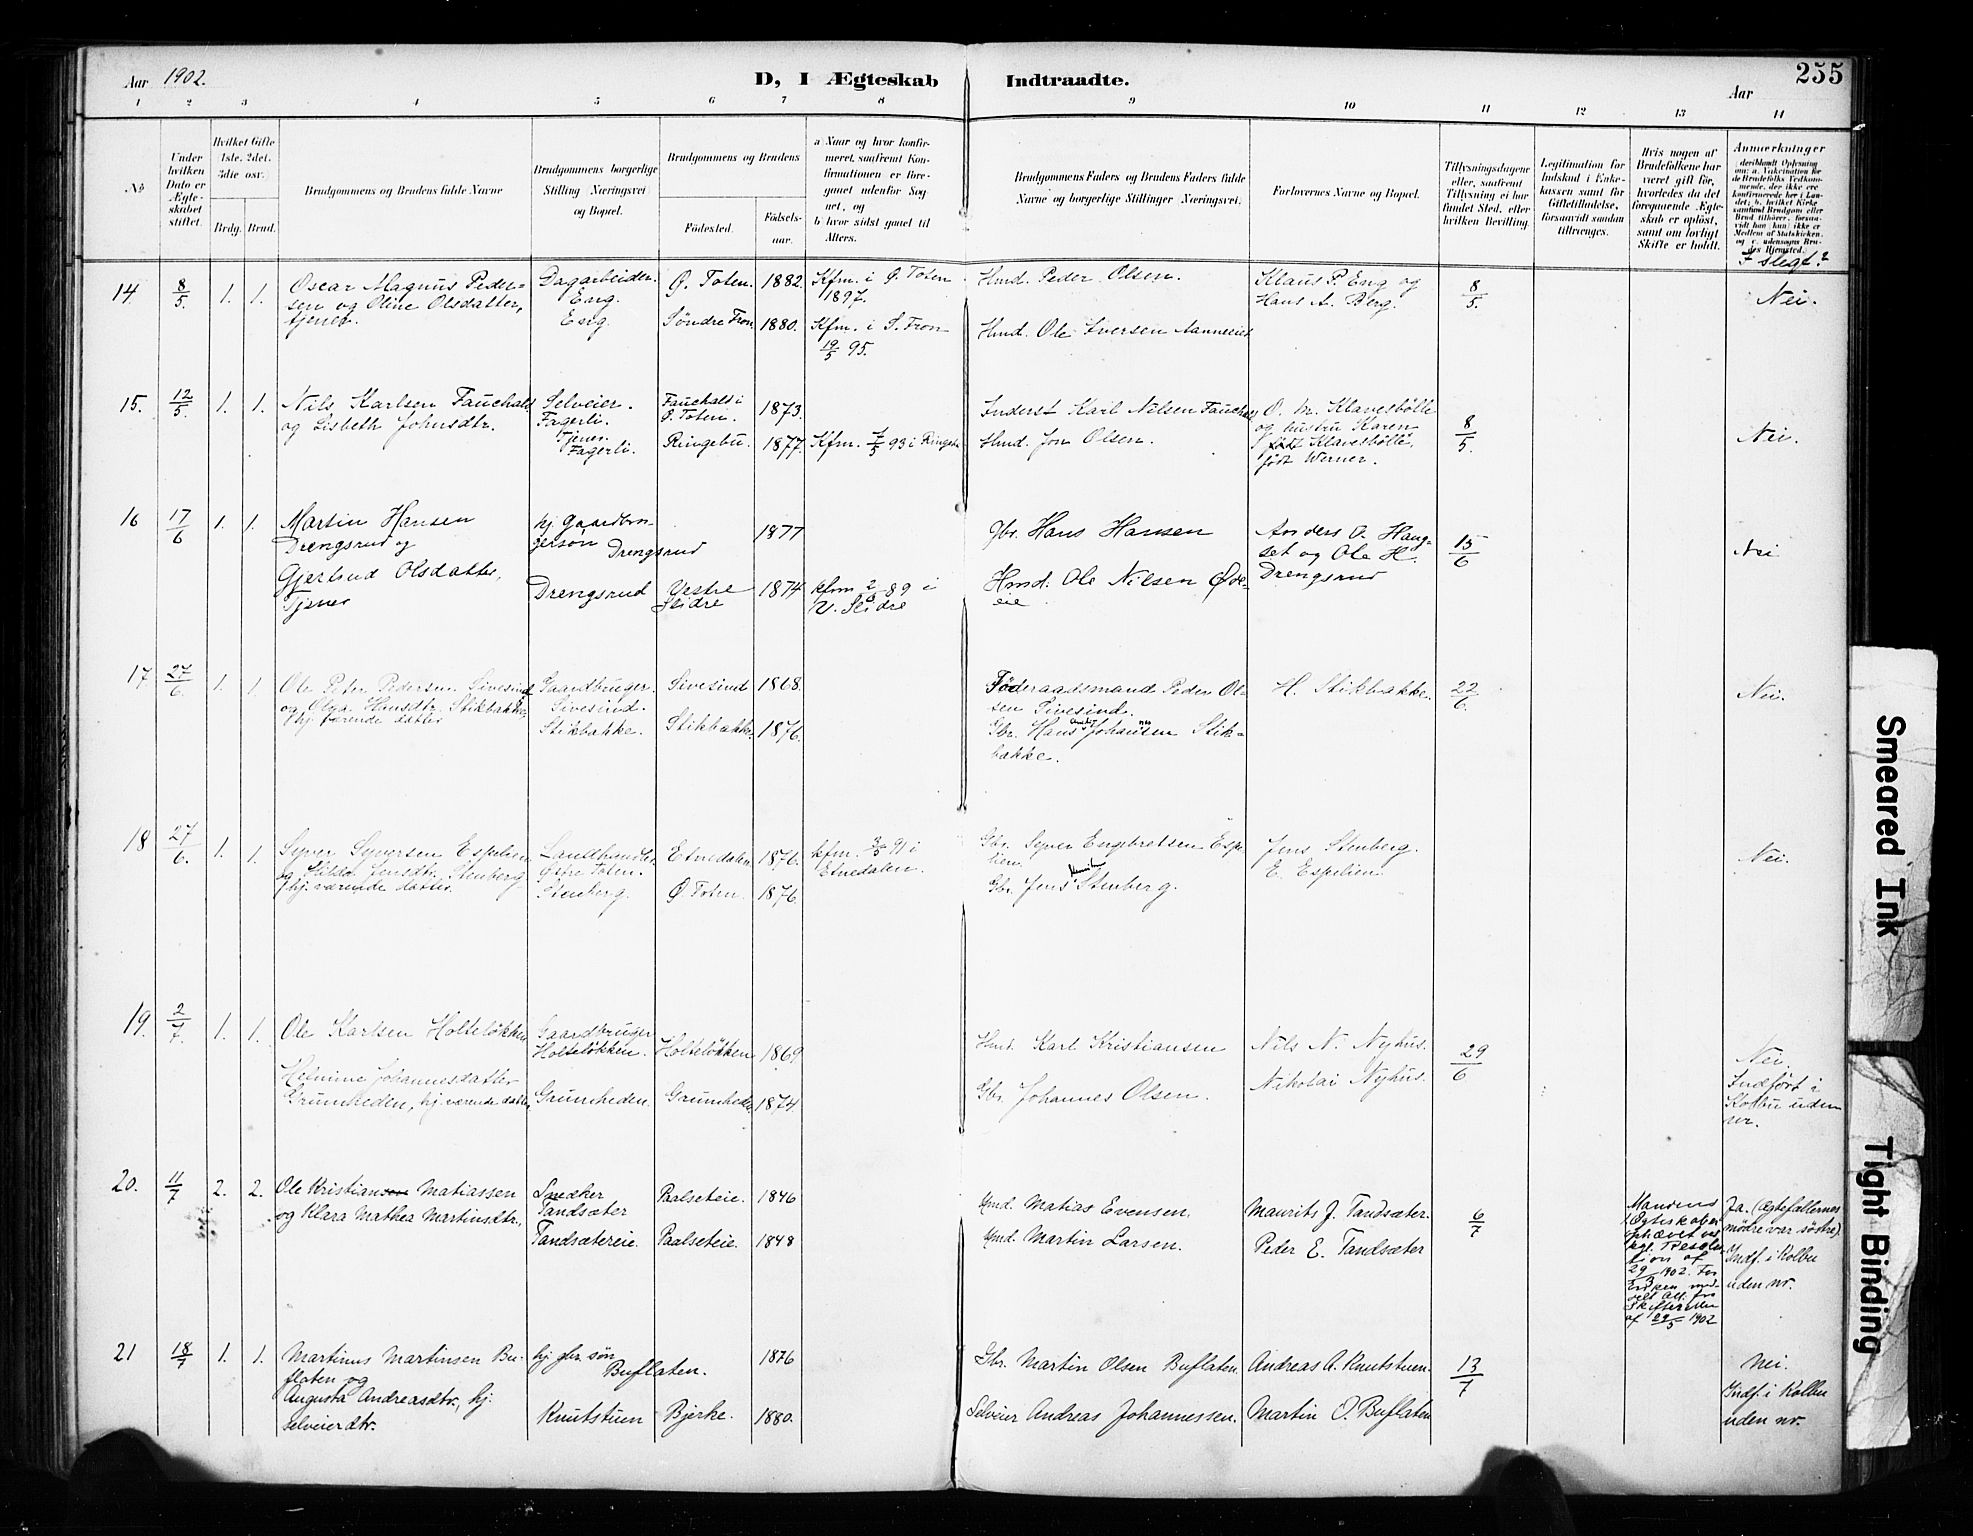 Aar 1902.
D, I Ægteskab Indtraadte.
Aar
255
1 2 3 4 5 6 7 8 9 10 11 12 13 14
No
Under hvilken Dato er Ægteskabet stiftet.
Hvilket Gifte 1ste, 2det, 3die osv.
Brdg. Brud.
Brudgommens og Brudens fulde Navne
Brudgommens borgerlige Stilling Næringsvei og Bopæl.
Brudgommens og Brudens
Fødested.
Fødselsaar.
a Naar og hvor konfirmeret, saafremt Konfirmationen er foregaaet udenfor Sognet, og
b hvor sidst gaaet til Alters.
Brudgommens Faders og Brudens Faders fulde Navne og borgerlige Stillinger Næringsvei.
Forlovernes Navne og Bopæl.
Tillysningsdagene eller, saafremt Tillysning ei har fundet Sted, efter hvilken Bevilling.
Legitimation for Indskud i Enkekassen samt for Giftetilladelse, forsaavidt saadan tiltrænges.
Hvis nogen af Brudefolkene har været gift før, hvorledes da det foregaaende Ægteskab er opløst, samt om lovligt Skifte er holdt.
Anmærkninger
slegt?
14 8/5 1. 1. Oscar Magnus Peder-
sen og Oline Olsdatter,
tjener.
Dagarbeider
Eng.
Eng.
Ø. Toten. 1882.
Søndre Fron 1880.
Kfm. i Ø. Toten
1897.
Kfm. i S. Fron
19/5 95.
Hmd. Peder Olsen.
Hmd. Ole Iversen
Klaus P. Eng og
Hans A. Berg.
8/5
Nei.
15. 12/5 1. 1. Nils Karlsen Fauchald
og Lisbeth Johnsdtr.
Selveier.
Fagerli.
Tjener
Fagerli.
Fauchald i
Ø. Toten. 1873.
Ringebu. 1877.
Kfm. 93 i Ringebu
Inderst Karl Nilsen Fauchald
Hmd. Jon Olsen.
O. M. Klavesbølle
og hustru Karen
Klavesbølle,
født Werner.
8/5.
Nei.
16 17/6 1. 1. Martin Hansen
Drengsrud og
Gjertrud Olsdatter,
Tjener
hj. gaardbru-
gersøn
Drengsrud
Drengsrud
1877
Vestre
Slidre 1874
kfm 89 i
V. Slidre
Gbr. Hans Hansen
Hmd. Ole Nilsen Øde-
eie
Anders O. Haug-
set og Ole H.
Drengsrud
15/6
Nei
17 27/6 1. 1. Ole Peter Pedersen Sivesind
og Olga Hansdtr. Stikbakke,
hj. værende datter
Gaardbruger.
Sivesind.
Stikbakke.
Sivesind 1868.
Stikbakke. 1876.
Føderaadsmand Peder Ol-
sen Sivesind.
Gbr. Hans Johansen Stik-
bakke.
H. Stikbakke.
22/6.
Nei.
18 27/6. 1. 1. Syver Syversen Espelien
og Hilda Jensdtr. Stenberg
hj. værende datter.
Landhandler
Østre Toten.
Stenberg.
Etnedalen 1876.
Ø. Toten. 1876.
kfm. 3/5 91 i
Etnedalen.
Gbr. Syver Engebretsen Espe-
lien
Gbr. Jens Stenberg.
Jens Stenberg.
E. Espelien.
Nei.
19. 2/7. 1. 1. Ole Karlsen Holteløkken
Helmine Johannesdatter
Grumheden, hj. værende datter,
Gaardbruger
Holteløkken.
Grumheden.
Holteløkken 1869
Grumheden 1874.
Hmd. Karl Kristiansen
Gbr. Johannes Olsen.
Nils N. Nyhus.
Nikolai Nyhus.
29/6
Nei.
Indført i
Kolbu uden
nr.
20. 11/7 2. 2. Ole Kristian Matiassen
og Klara Mathea Martinsdtr.
Snekker
Tandsæter
Tandsætereie.
Paalseteie. 1846
Paalseteie. 1848
Hmd. Matias Evensen.
Hmd. Martin Larsen.
Maurits J. Tandsæter.
Peder E. Tandsæter
6/7
Mandens
Ægteskab er
ophævet ved
kgl. Resolu-
tion af
29/3 1902. For
Enken
Att. fra
Skifteretten
af 29/5 1902
Ja. (Ægtefællernes
mødre var søstre).
Indf. i Kolbu
uden nr.
21 18/7 1. 1. Martinus Martinsen Bu-
flaten og
Augusta Andreasdtr., hj.
selveierdtr.
hj. gbr. søn
Buflaten.
Knutstuen
1876
Bjerke. 1880.
Gbr. Martin Olsen Buflaten.
Selveier Andreas Johannessen.
Andreas A. Knutstuen.
Martin O. Buflaten
13/7
Nei.
Indf. i Kolbu
uden nr.
Smeared Ink
Tight Binding